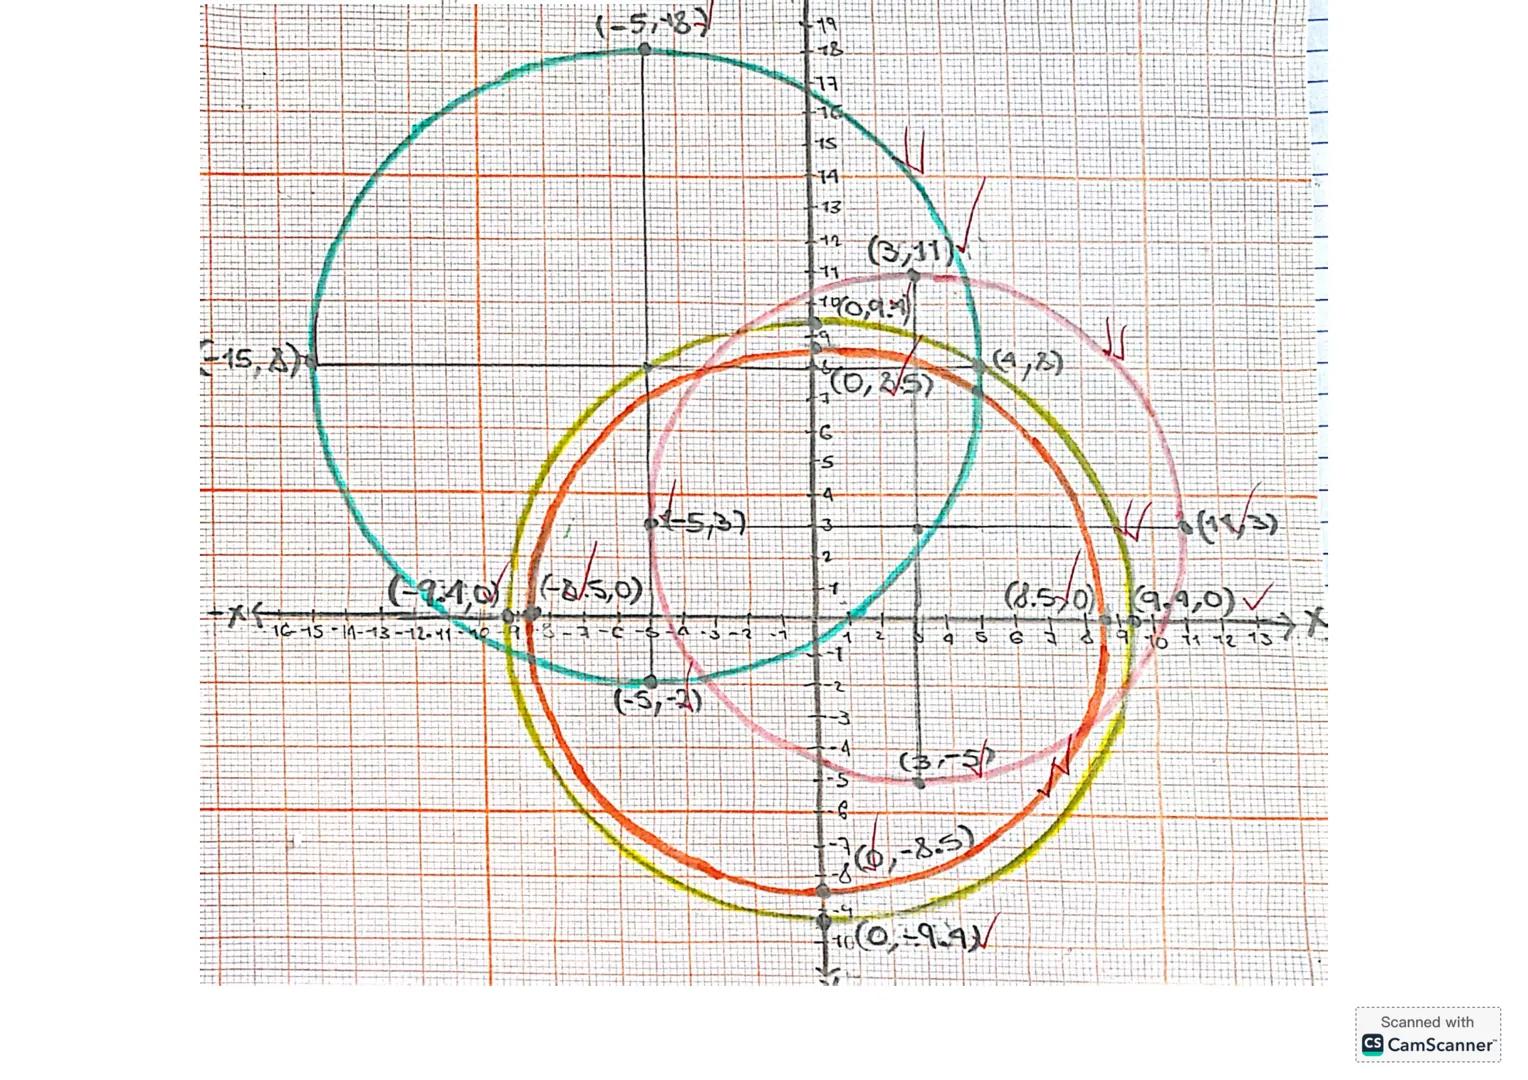 (-5,18)
19
18
17
16
15
14
13
12
(3,11)
11
10
(0,9.4)
9
(-15,8)
8
(4,8)
(0,8.5)
7
6
5
4
(-5,3)
3
(11,3)
2
(-9.4,0)
(-8.5,0)
1
(8.5,0)
(9.4,0)
X
-16 -15 -14 -13 -12 -11 -10 -9 -8 -7 -6 -5 -4 -3 -2 -1
1 2 3 4 5 6 7 8 9 10 11 12 13
X
-1
(-5,-2)
-2
-3
-4
(3,-5)
-5
-6
-7
(0,-8.5)
-8
-9
-10
(0,-9.4)
Scanned with
CS CamScanner